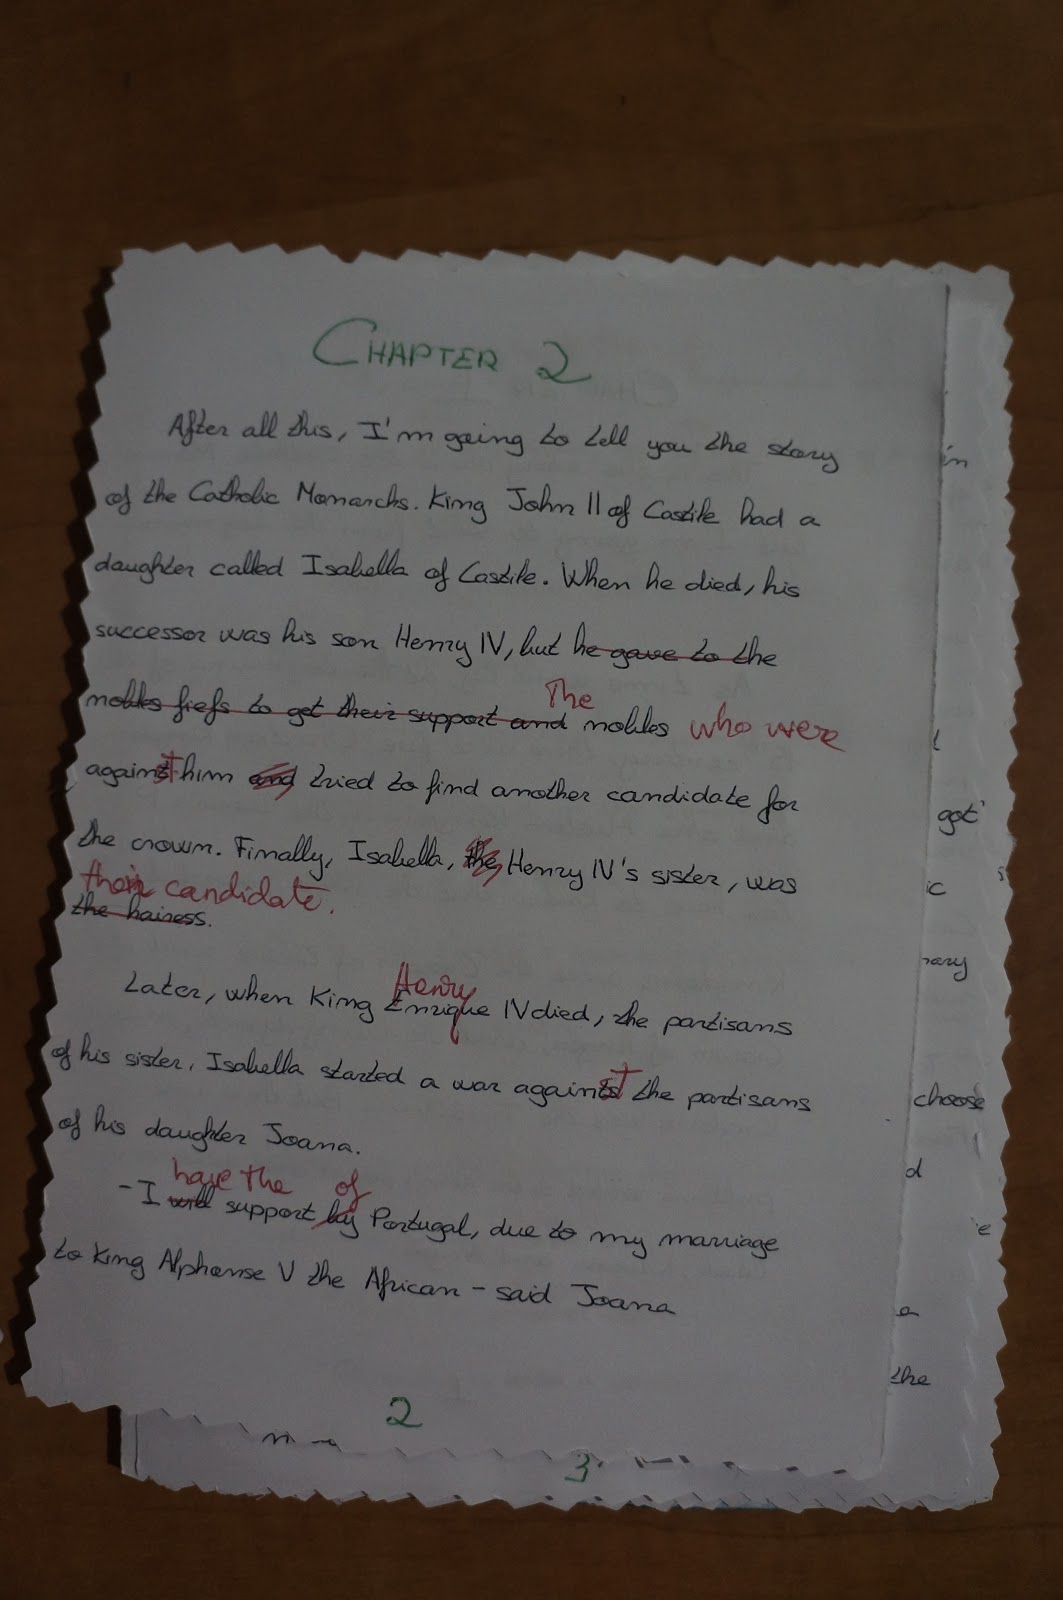 CHAPTER 2
After all this, I'm going to tell you the story
of the Catholic Monarchs. King John II of Castile had a
daughter called Isabella of Castile. When he died, his
successor was his son Henry IV, but he gave to the
The
nobles fiefs to get their support and nobles who were
against him and tried to find another candidate for
the crown. Finally, Isabella, the Henry IV's sister, was
their candidate.
the hairess.
Henry
Later, when King Enrique IV died, the partisans
of his sister, Isabella started a war against the partisans
of his daughter Joana.
have the of
-I will support by Portugal, due to my marriage
to King Alphonse V the African - said Joana
2
3
in
got
choose
d
a
the